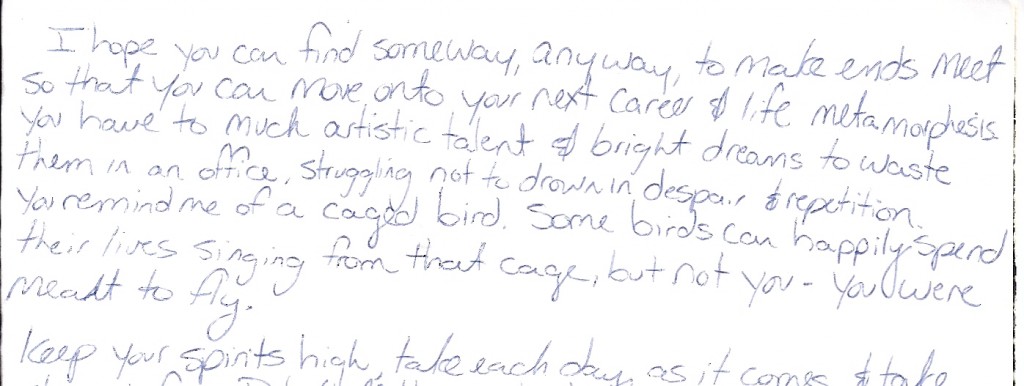 I hope you can find someway, anyway, to make ends meet
so that you can move onto your next career & life metamorphesis.
You have to much artistic talent & bright dreams to waste
them in an office, struggling not to drown in despair & repetition.
You remind me of a caged bird. Some birds can happily spend
their lives singing from that cage, but not you - you were
meant to fly.
Keep your spirits high, take each day as it comes & take